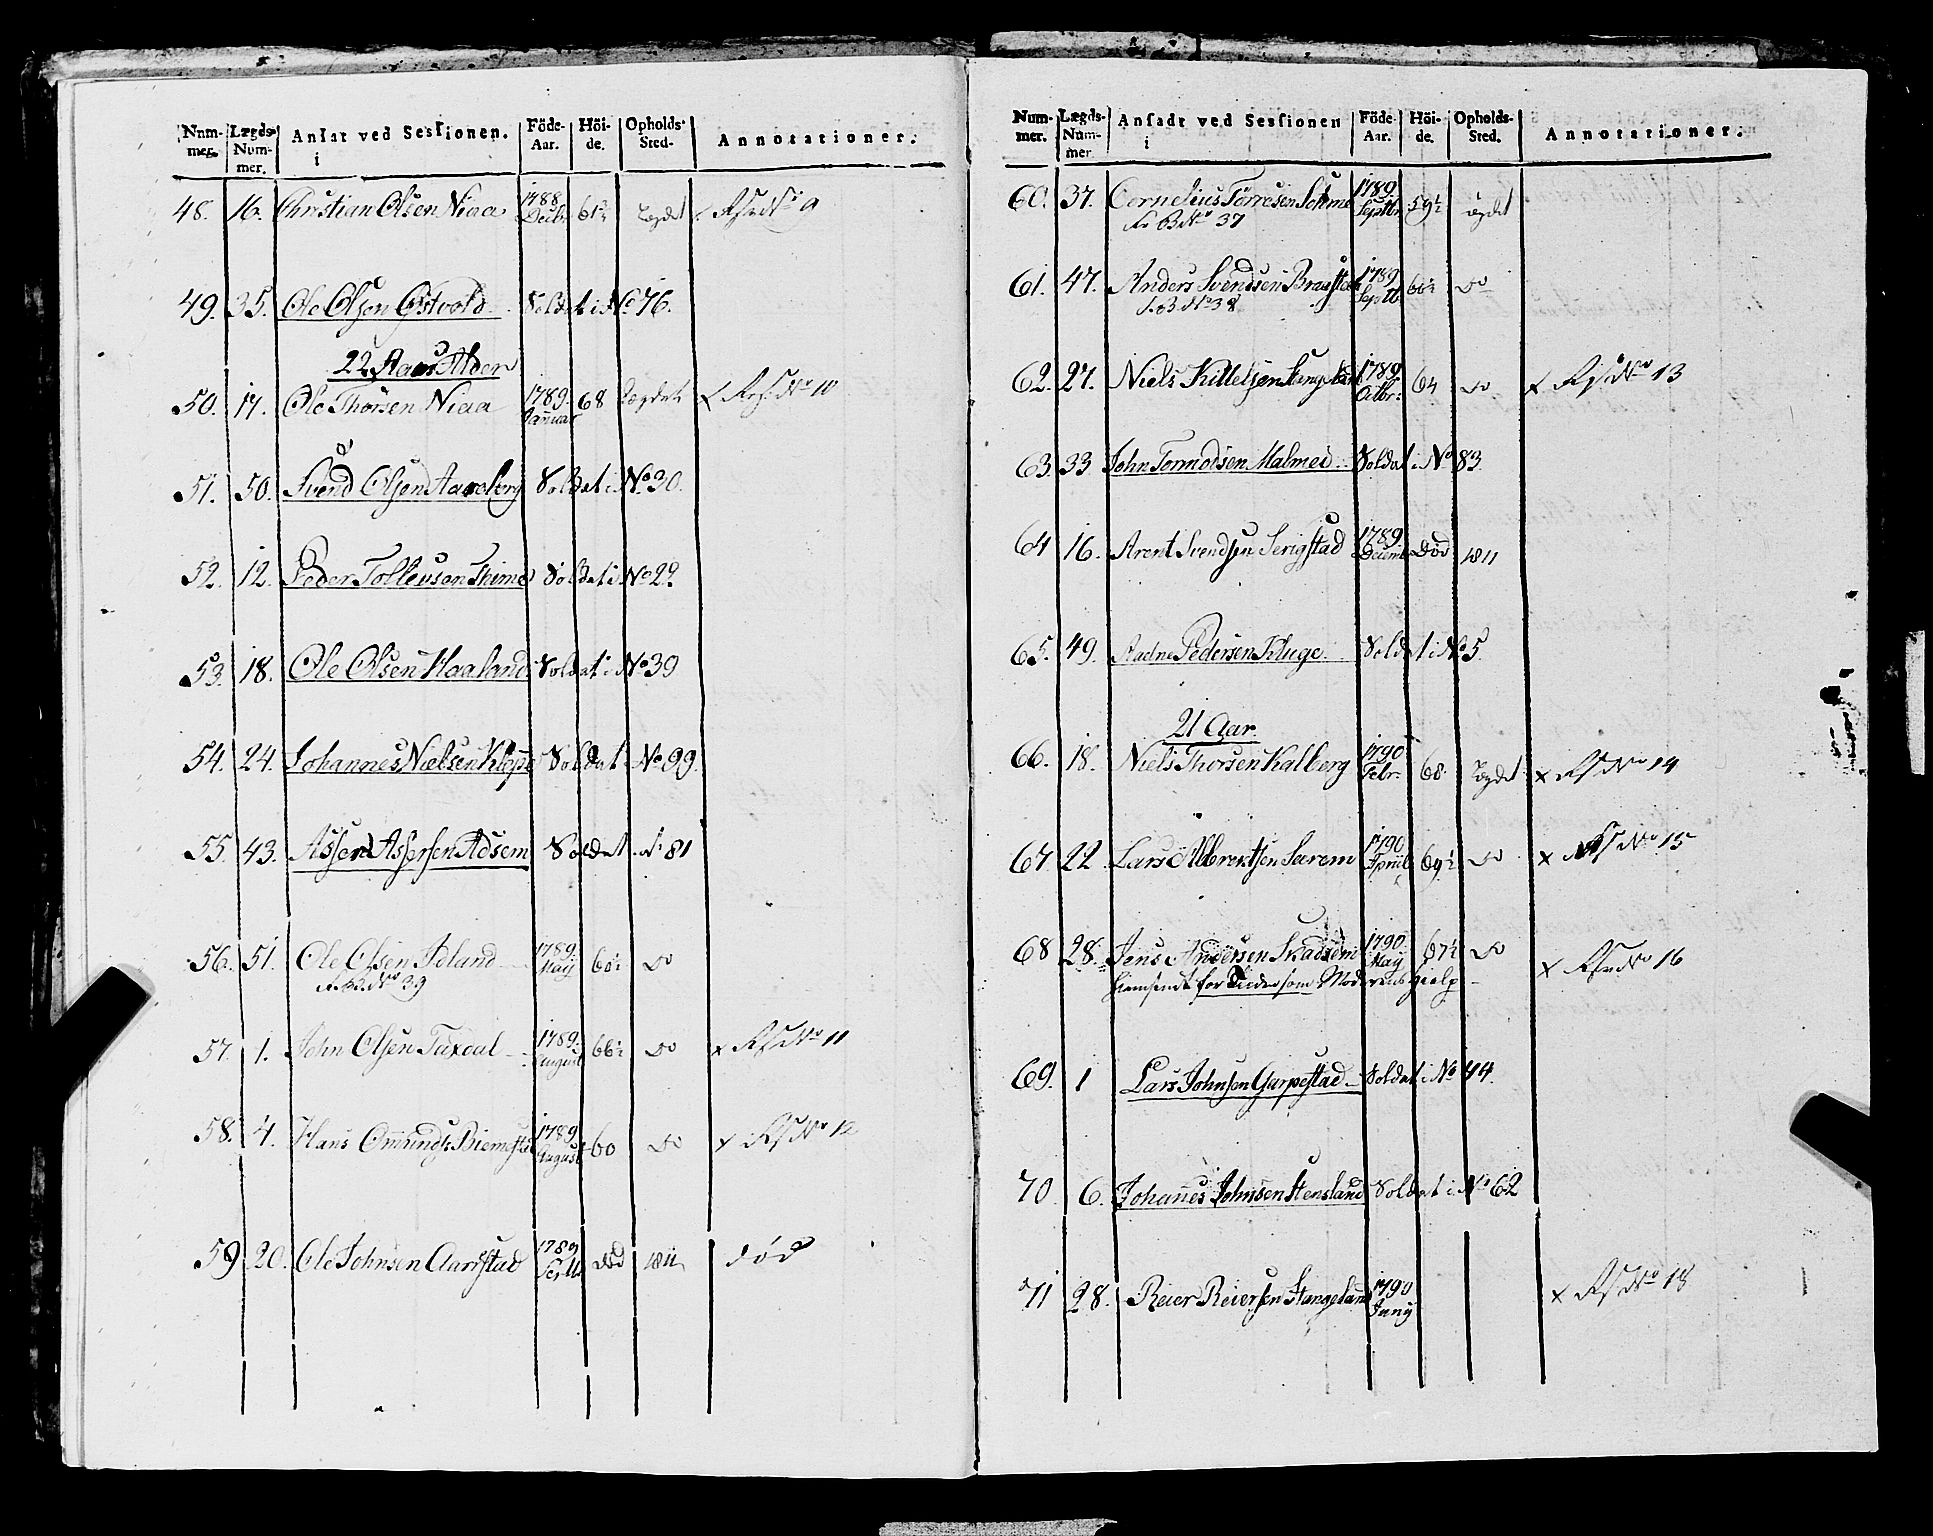 Num-mer. Lægds-Num-mer. Ansat ved Sessionen. i Föde-Aar. Höi-de. Opholds-Sted. Annotationer.
48. 16. Christian Olsen Niaa 1788 Decbr 61½ Lægdet 9
49. 35. Ole Olsen Østvold Soldat i No 76.
22 Aars Alder
50. 17. Ole Thorsen Niaa 1789. Januar 68 Lægdet No 10
51. 50. Svend Olsen Soldat i No 30.
52. 12. Peder Tollevsen Thime Soldat i No 22
53. 18. Ole Olsen Haaland Soldat i No 39
54. 24. Johannes Nielsen Kleppe Soldat i No 99.
55. 43. Asser Assersen Adsem Soldat i 81
56. 51. Ole Olsen Idland 1789 May 60½ do
No 39
57. 1. John Olsen Taxdal 1789. August 66½ do x No 11
58. 4. Hans Omunds 1789 August 60 do x No 12
59 20. Ole Johnsen Aarrestad 1789 Septb død 1811 død
Num-mer. Lægds-Num-mer. Ansadt ved Sessionen i Föde-Aar. Höi-de. Opholds-Sted. Annotationer.
60. 37. Cornelius Torresen 1789 Septbr 59½ Lægdet
No 37
61. 47. Anders Svendsen 1789 Septb do
No 38
62. 27. Niels Kittelsen 1789 Octbr. 64 do x No 13
63. 33 John Tormodsen Malmei Soldat i No 83
64 16. Arent Svendsen Serigstad 1789 Decemb død 1811
65. 49. Aadne Pedersen Kluge. Soldat i No 5.
21 Aar.
66. 18. Niels Thorsen Kalberg 1790 Febr. 68 Lægdet x No 14
67 22 Lars Albrektsen Sarem 1790 April 69½ do x No 15
68 28. Jens Andersen Skadsem 1790 May 67½ do x No 16
hiemsendt for Tiden som Moderens hielp
69. 1 Lars Johnsen Garpestad Soldat i No 44.
70 6. Johannes Johnsen Hensland Soldat i No 62
71 28. Reier Reiersen Stangeland 1790 Juny x No 18